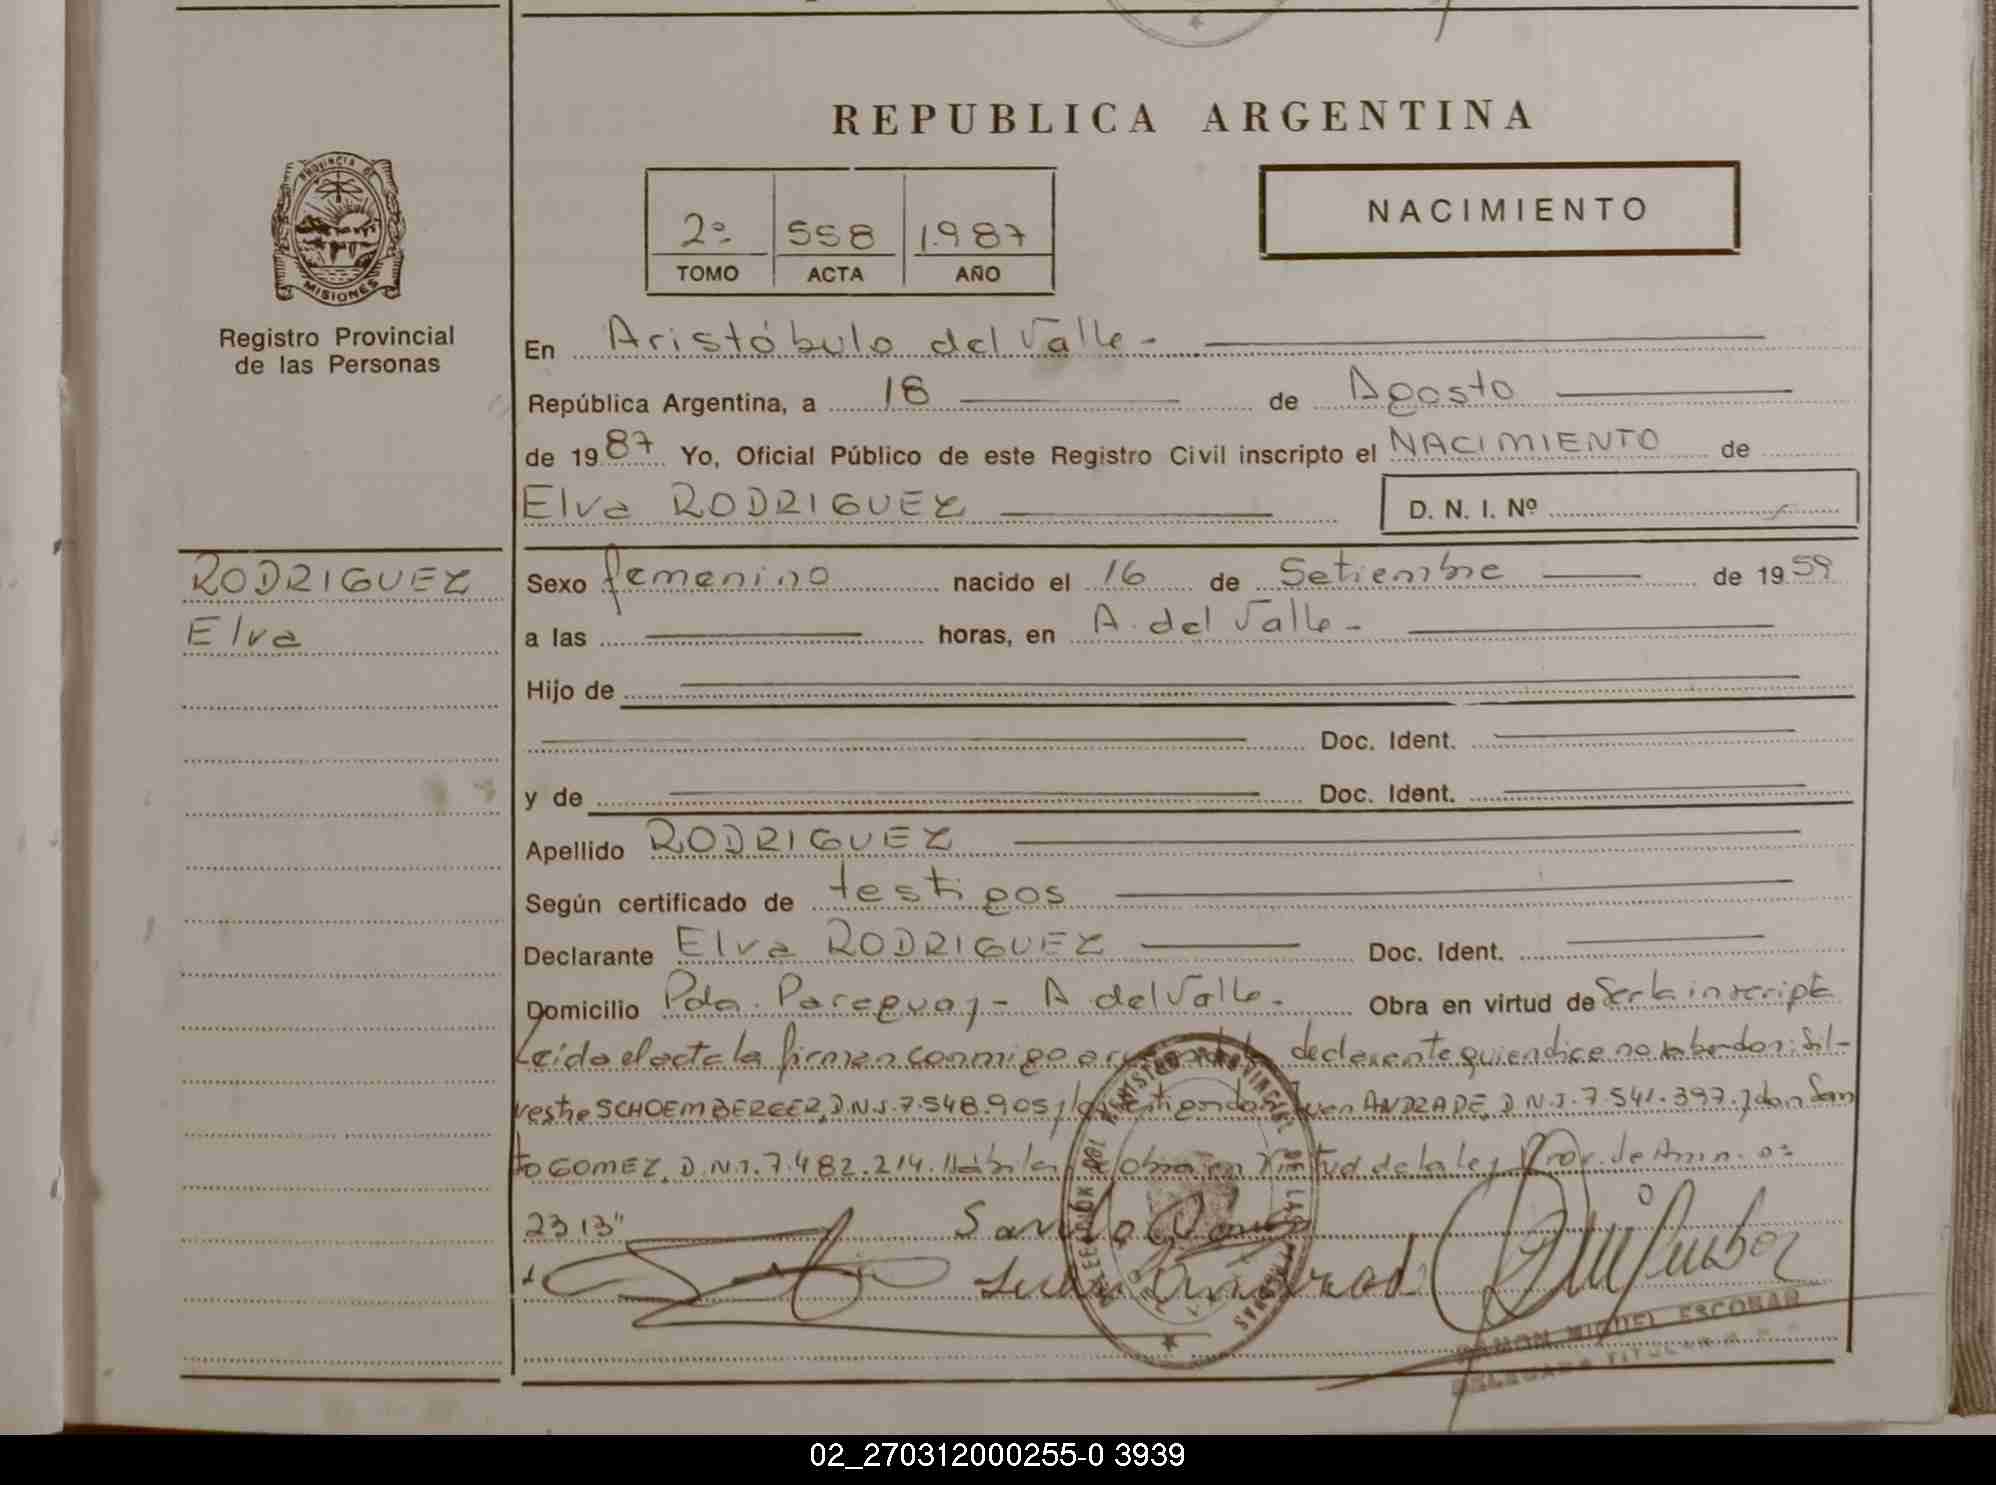 REPUBLICA ARGENTINA
PROVINCIA DE MISIONES
Registro Provincial
de las Personas
2º 558 1.987
TOMO ACTA AÑO
NACIMIENTO
En Aristóbulo del Valle -
República Argentina, a 18 de Agosto
de 1987 Yo, Oficial Público de este Registro Civil inscripto el NACIMIENTO de
Elva RODRIGUEZ D. N. I. Nº
RODRIGUEZ
Elva
Sexo femenino nacido el 16 de Setiembre de 1959
a las horas, en A. del Valle -
Hijo de
Doc. Ident.
y de Doc. Ident.
Apellido RODRIGUEZ
Según certificado de testigos
Declarante Elva RODRIGUEZ Doc. Ident.
Domicilio Pda. Paraguay - A. del Valle - Obra en virtud de Ser la inscripta
Leída el acta la firman conmigo a la declarante quien dice no saber don: Sil-
vestre SCHOEMBERGER, D.N.I. 7.548.905 y los testigos don Juan ANDRADE, D.N.I. 7.541.397. y don San
to GOMEZ, D.N.I. 7.482.214. Hábiles Obra en Virtud de la ley Prov. de Amn. nº
2313"
RAMON MIGUEL ESCOBAR
DELEGADO TITULAR
02_270312000255-0 3939